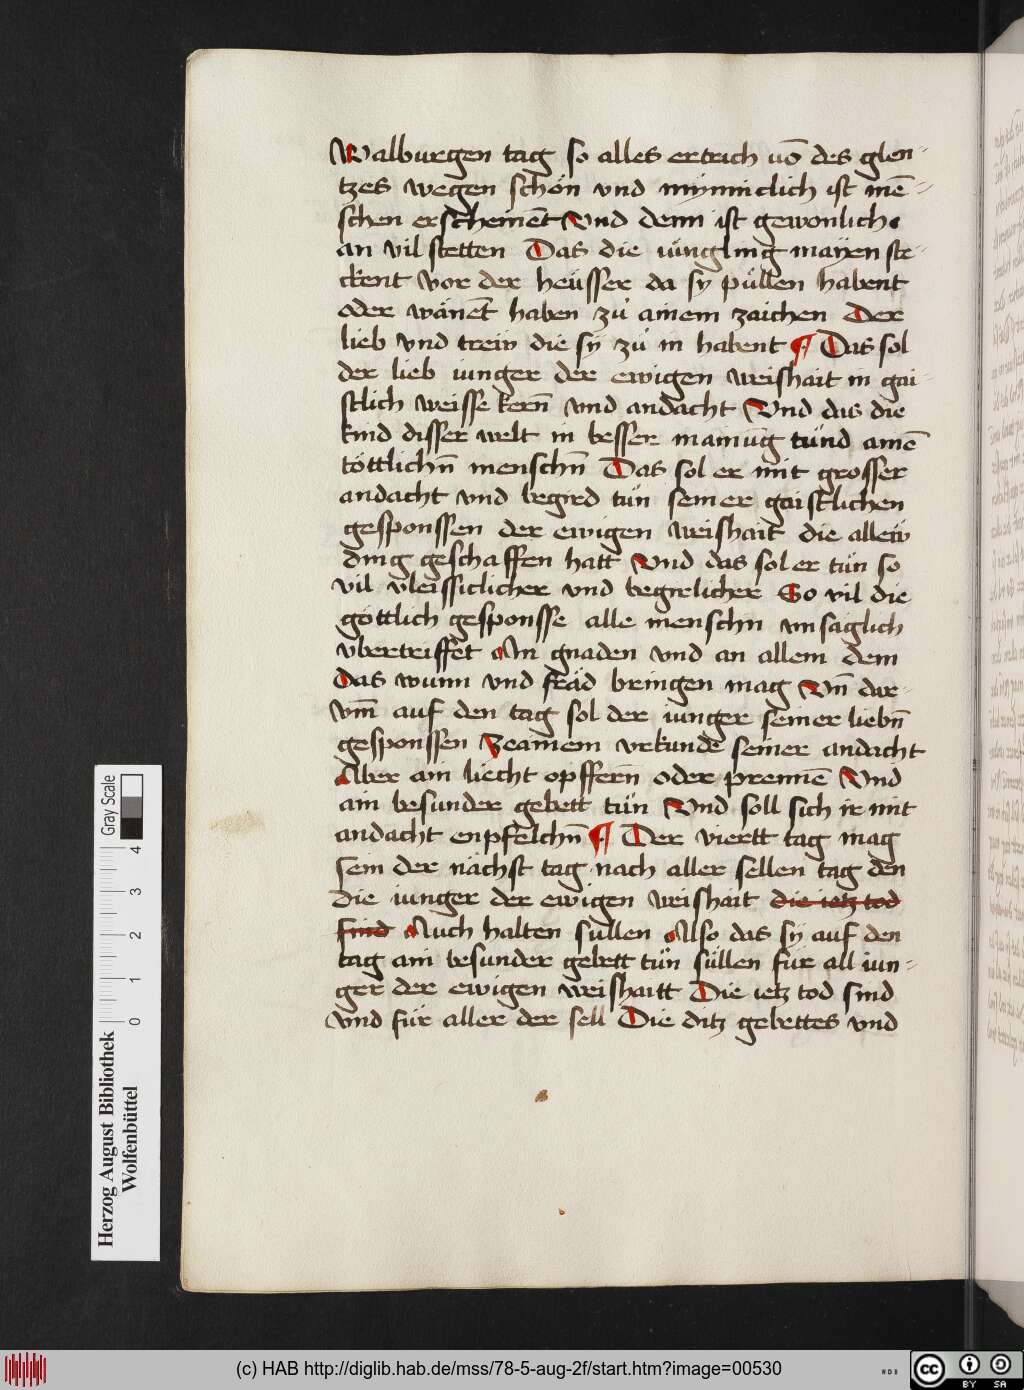 Walburgen tag so alles ertrich uō des glen-
tzes wegen schön vnd mynniclich ist mē-
schen erscheinēt Vnd denn ist gewonlich
an vil stetten Das die iüngling mayen ste-
ckent vor der heüsser da sy pülen habent
oder wänēt haben zů ainem zaichen Der
lieb vnd treẅ die sy zů in habent ¶ Das sol
der lieb iunger der ewigen weishait in gai-
stlich weisse kern̄ vnd andacht Vnd das die
kind disser welt in besser mainūg tünd ainē
töttlichn̄ menschn̄ Das sol er mit grosser
andacht vnd begird tün seiner gaistlichen
gesponssen der ewigen weishait die alleẅ
ding geschaffen hatt Vnd das sol er tün so
vil vleissiclicher vnd begirlicher So vil die
göttlich gesponsse alle menschn vnsaglich
vbertriffet An gnaden vnd an allem dem
Das wunn vnd fräd bringen mag Vn̄ dar-
vm̄ auf den tag sol der iunger seiner liebn̄
gesponssen Zeainem vrkunde seiner andacht
Aber ain liecht opffern̄ oder prennē Vnd
ain besunder gebett tün Vnd soll sich ir mit
andacht enpfelchn̄ ¶ Der viertt tag mag
sein der nächst tag nach aller sellen tag den
die iunger der ewigen weishait die ietz tod
sind Auch halten süllen Also das sy auf den
tag ain besunder gebett tün süllen für all iun-
ger der ewigen weishaitt Die ietz tod sind
vnd für aller der sell Die ditz gebettes vnd
Gray Scale
4
3
2
1
0
Herzog August Bibliothek
Wolfenbüttel
(c) HAB http://diglib.hab.de/mss/78-5-aug-2f/start.htm?image=00530
cc
BY SA